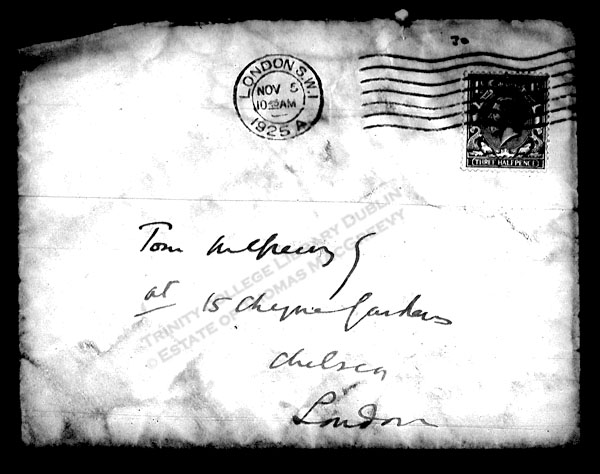 30
LONDON S.W.1
NOV 5
10 AM
1925 A
THREE HALFPENCE
Tom McGreevy
at 15 Cheyne Gardens
Chelsea
London
TRINITY COLLEGE LIBRARY DUBLIN
© ESTATE OF THOMAS MACGREEVY